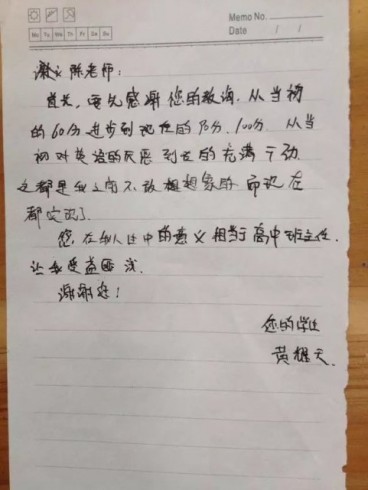 Memo No.
Date / /
Mo Tu We Th Fr Sa Su
陈老师：
首先，要先感谢您的教诲，从当初
的60分进步到现在的90分、100分 从当
初对英语的厌恶到 的充满了动
这都是我之前不敢想象的 而现在
都实现了.
您，在我人生中的意义相当于高中班主任.
让我受益匪浅.
谢谢您！
您的学生
黄耀天.